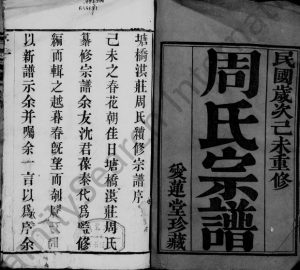 民國歲次己未重修
周氏宗譜
愛蓮堂珍藏
塘橋淇莊周氏續修宗譜序
己未之春花朝佳日塘橋淇莊周氏
纂修宗譜余友沈君葆泰
編而輯之越暮春既望而
以新譜示余并囑余一言以為序余